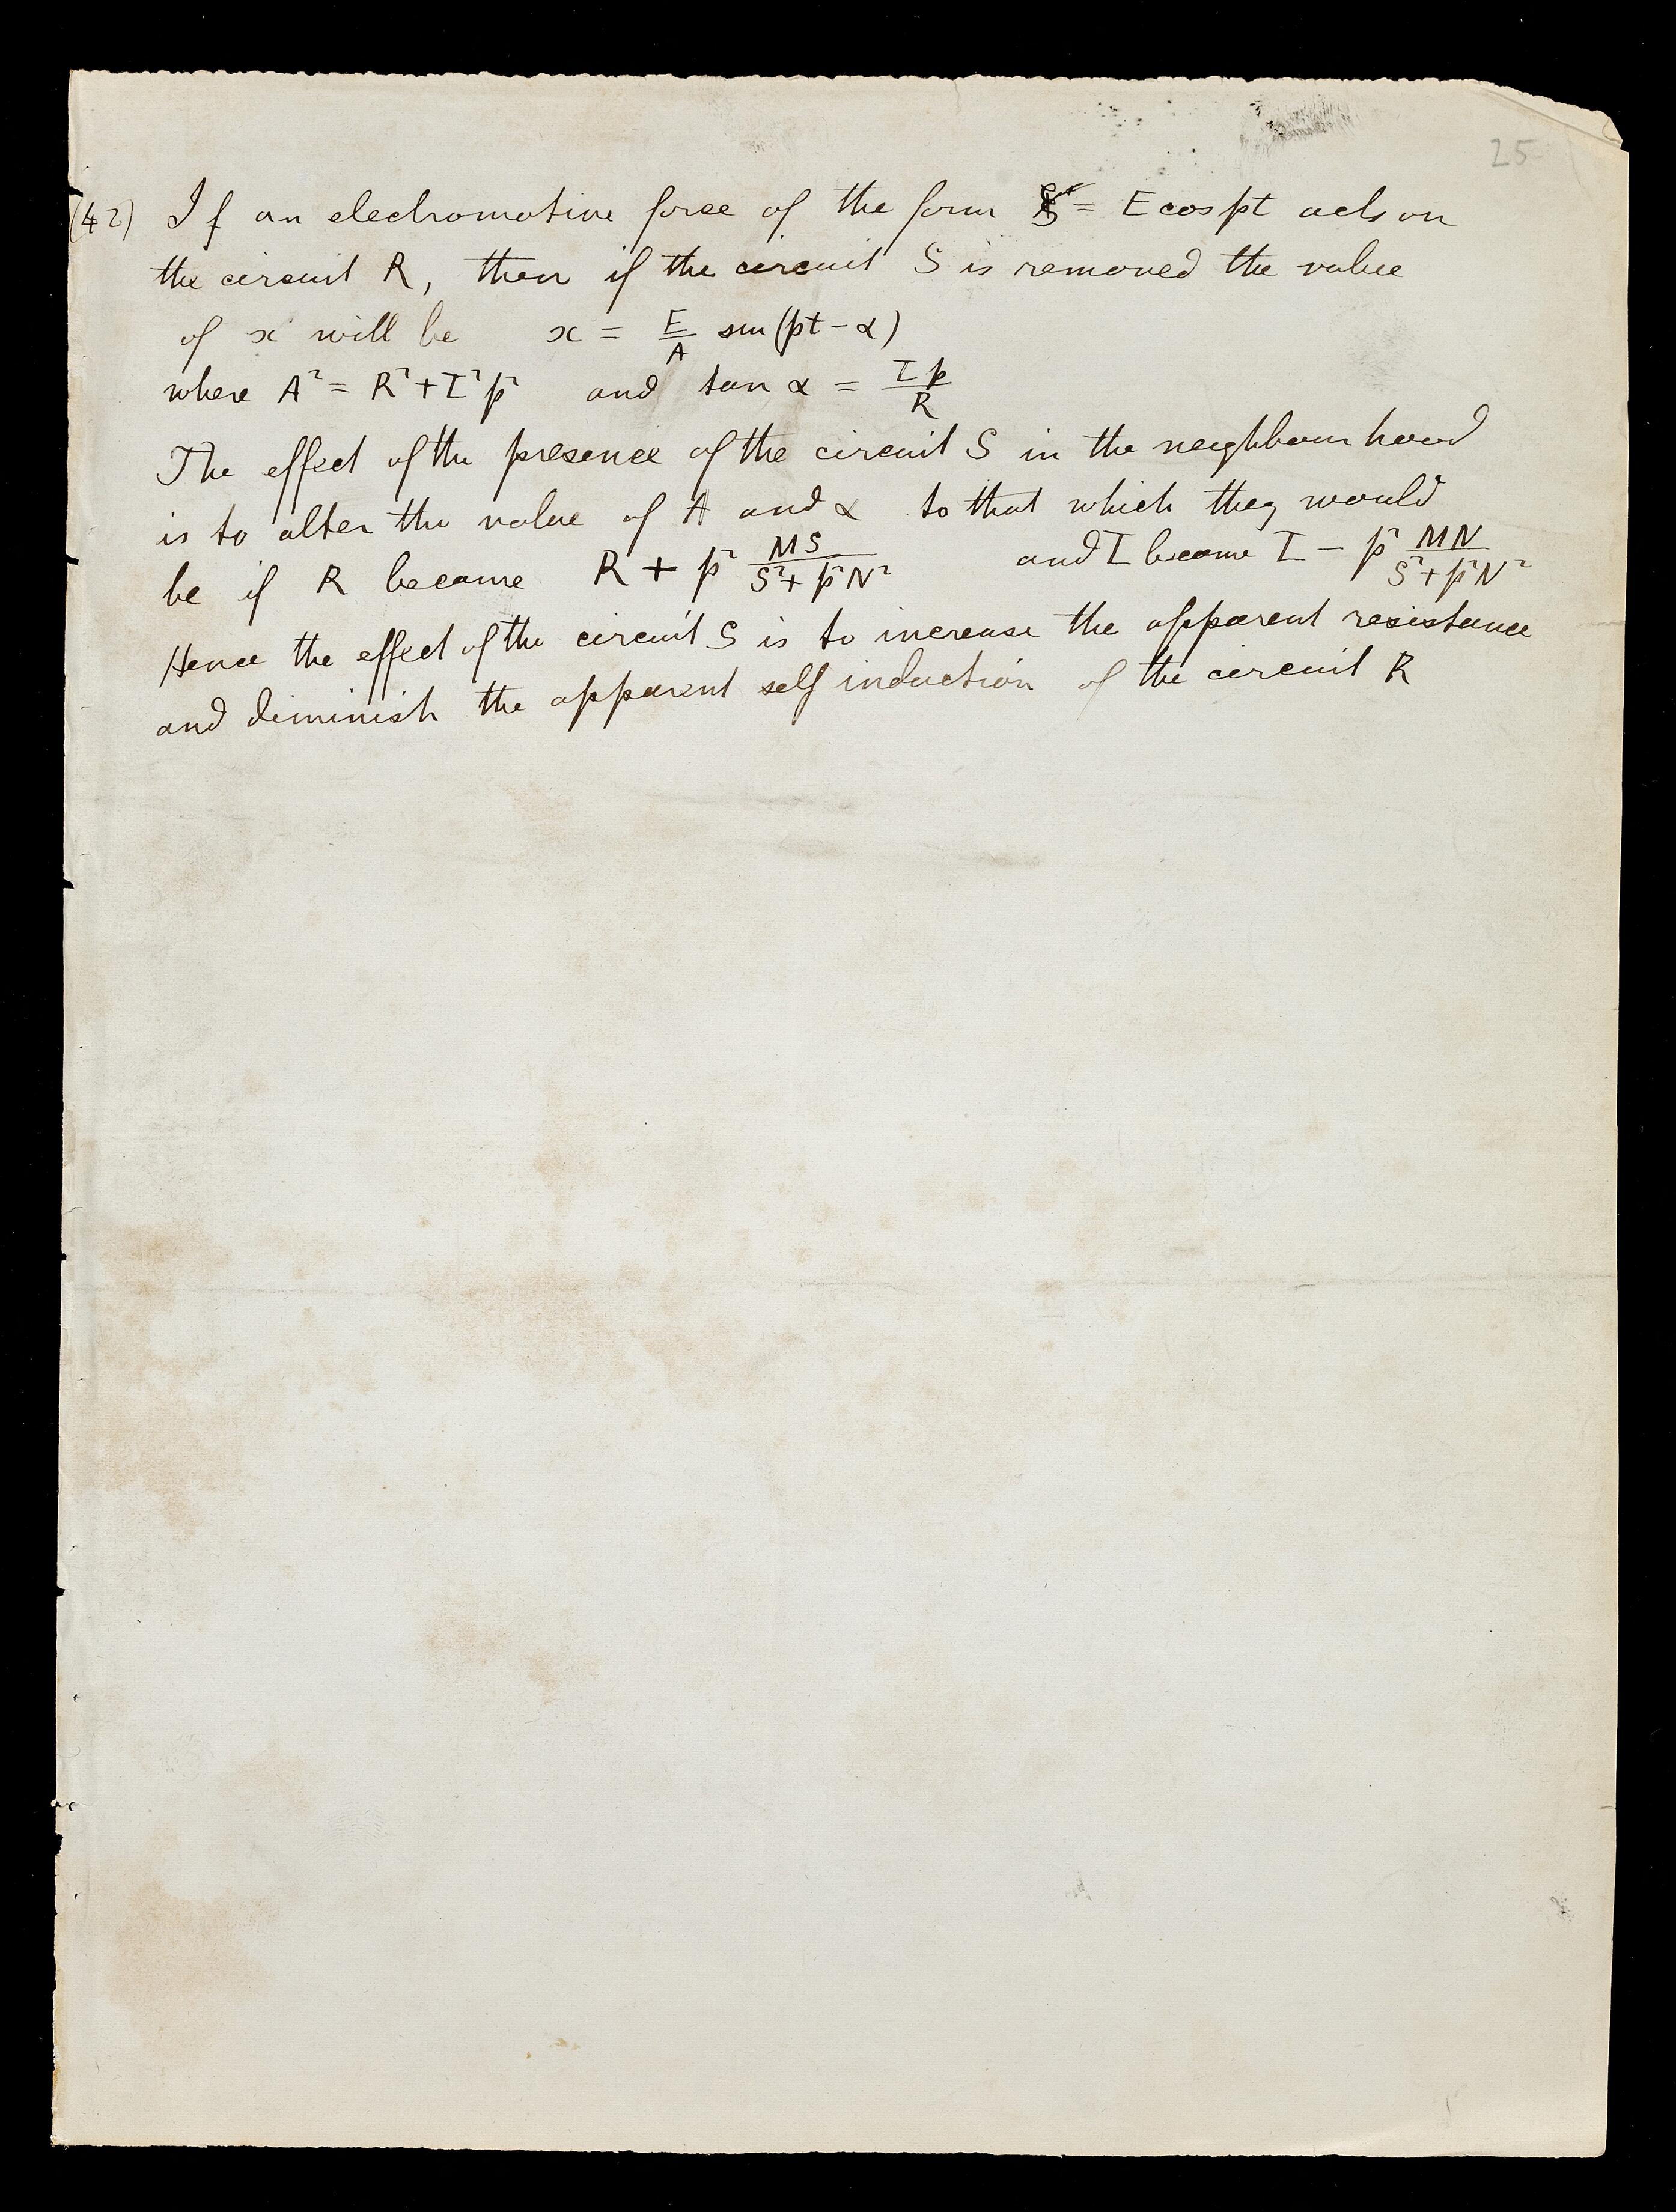 25
(42) If an electromotive force of the form = E cos pt acts on
the circuit R, then if the circuit S is removed the value
of x will be x = E/A sin (pt - α)
where A² = R² + I²p² and tan α = Ip/R
The effect of the presence of the circuit S in the neighbourhood
is to alter the value of A and α to that which they would
be if R became R + p² MS/(S² + p²N²) and I became I - p² MN/(S² + p²N²)
Hence the effect of the circuit S is to increase the apparent resistance
and diminish the apparent self induction of the circuit R